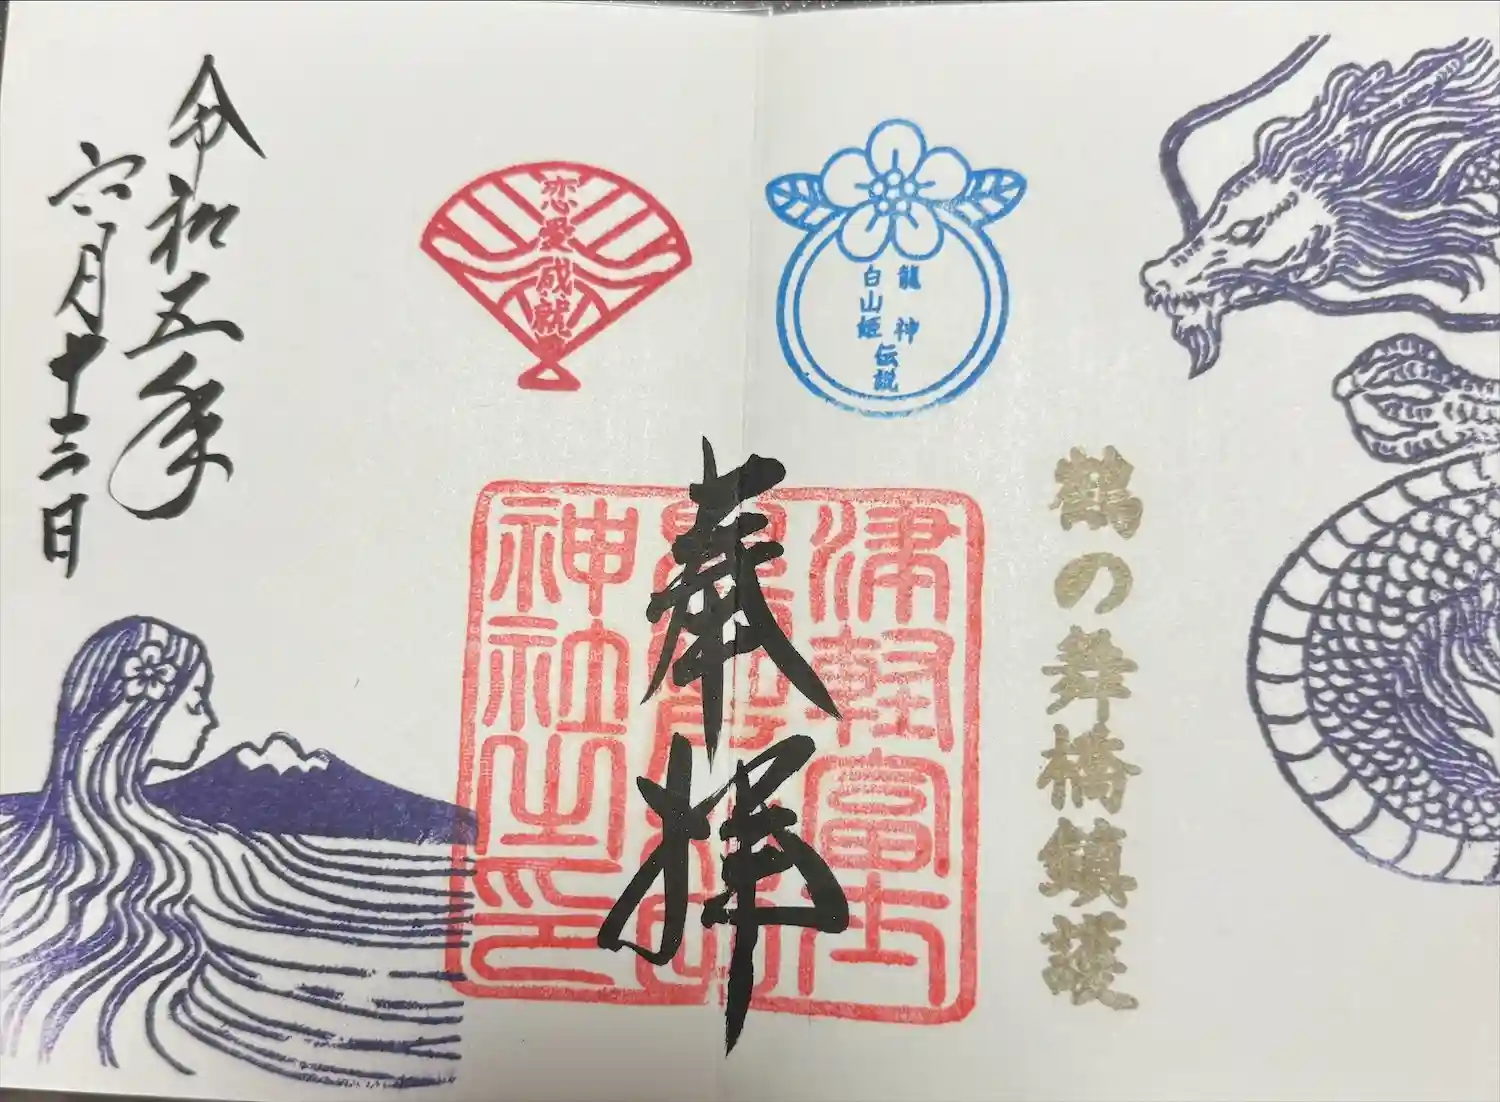 鶴の舞橋鎮護
龍神
白山姫
伝説
奉拝
津軽富士
神社之印
恋愛成就
令和五年
六月十三日